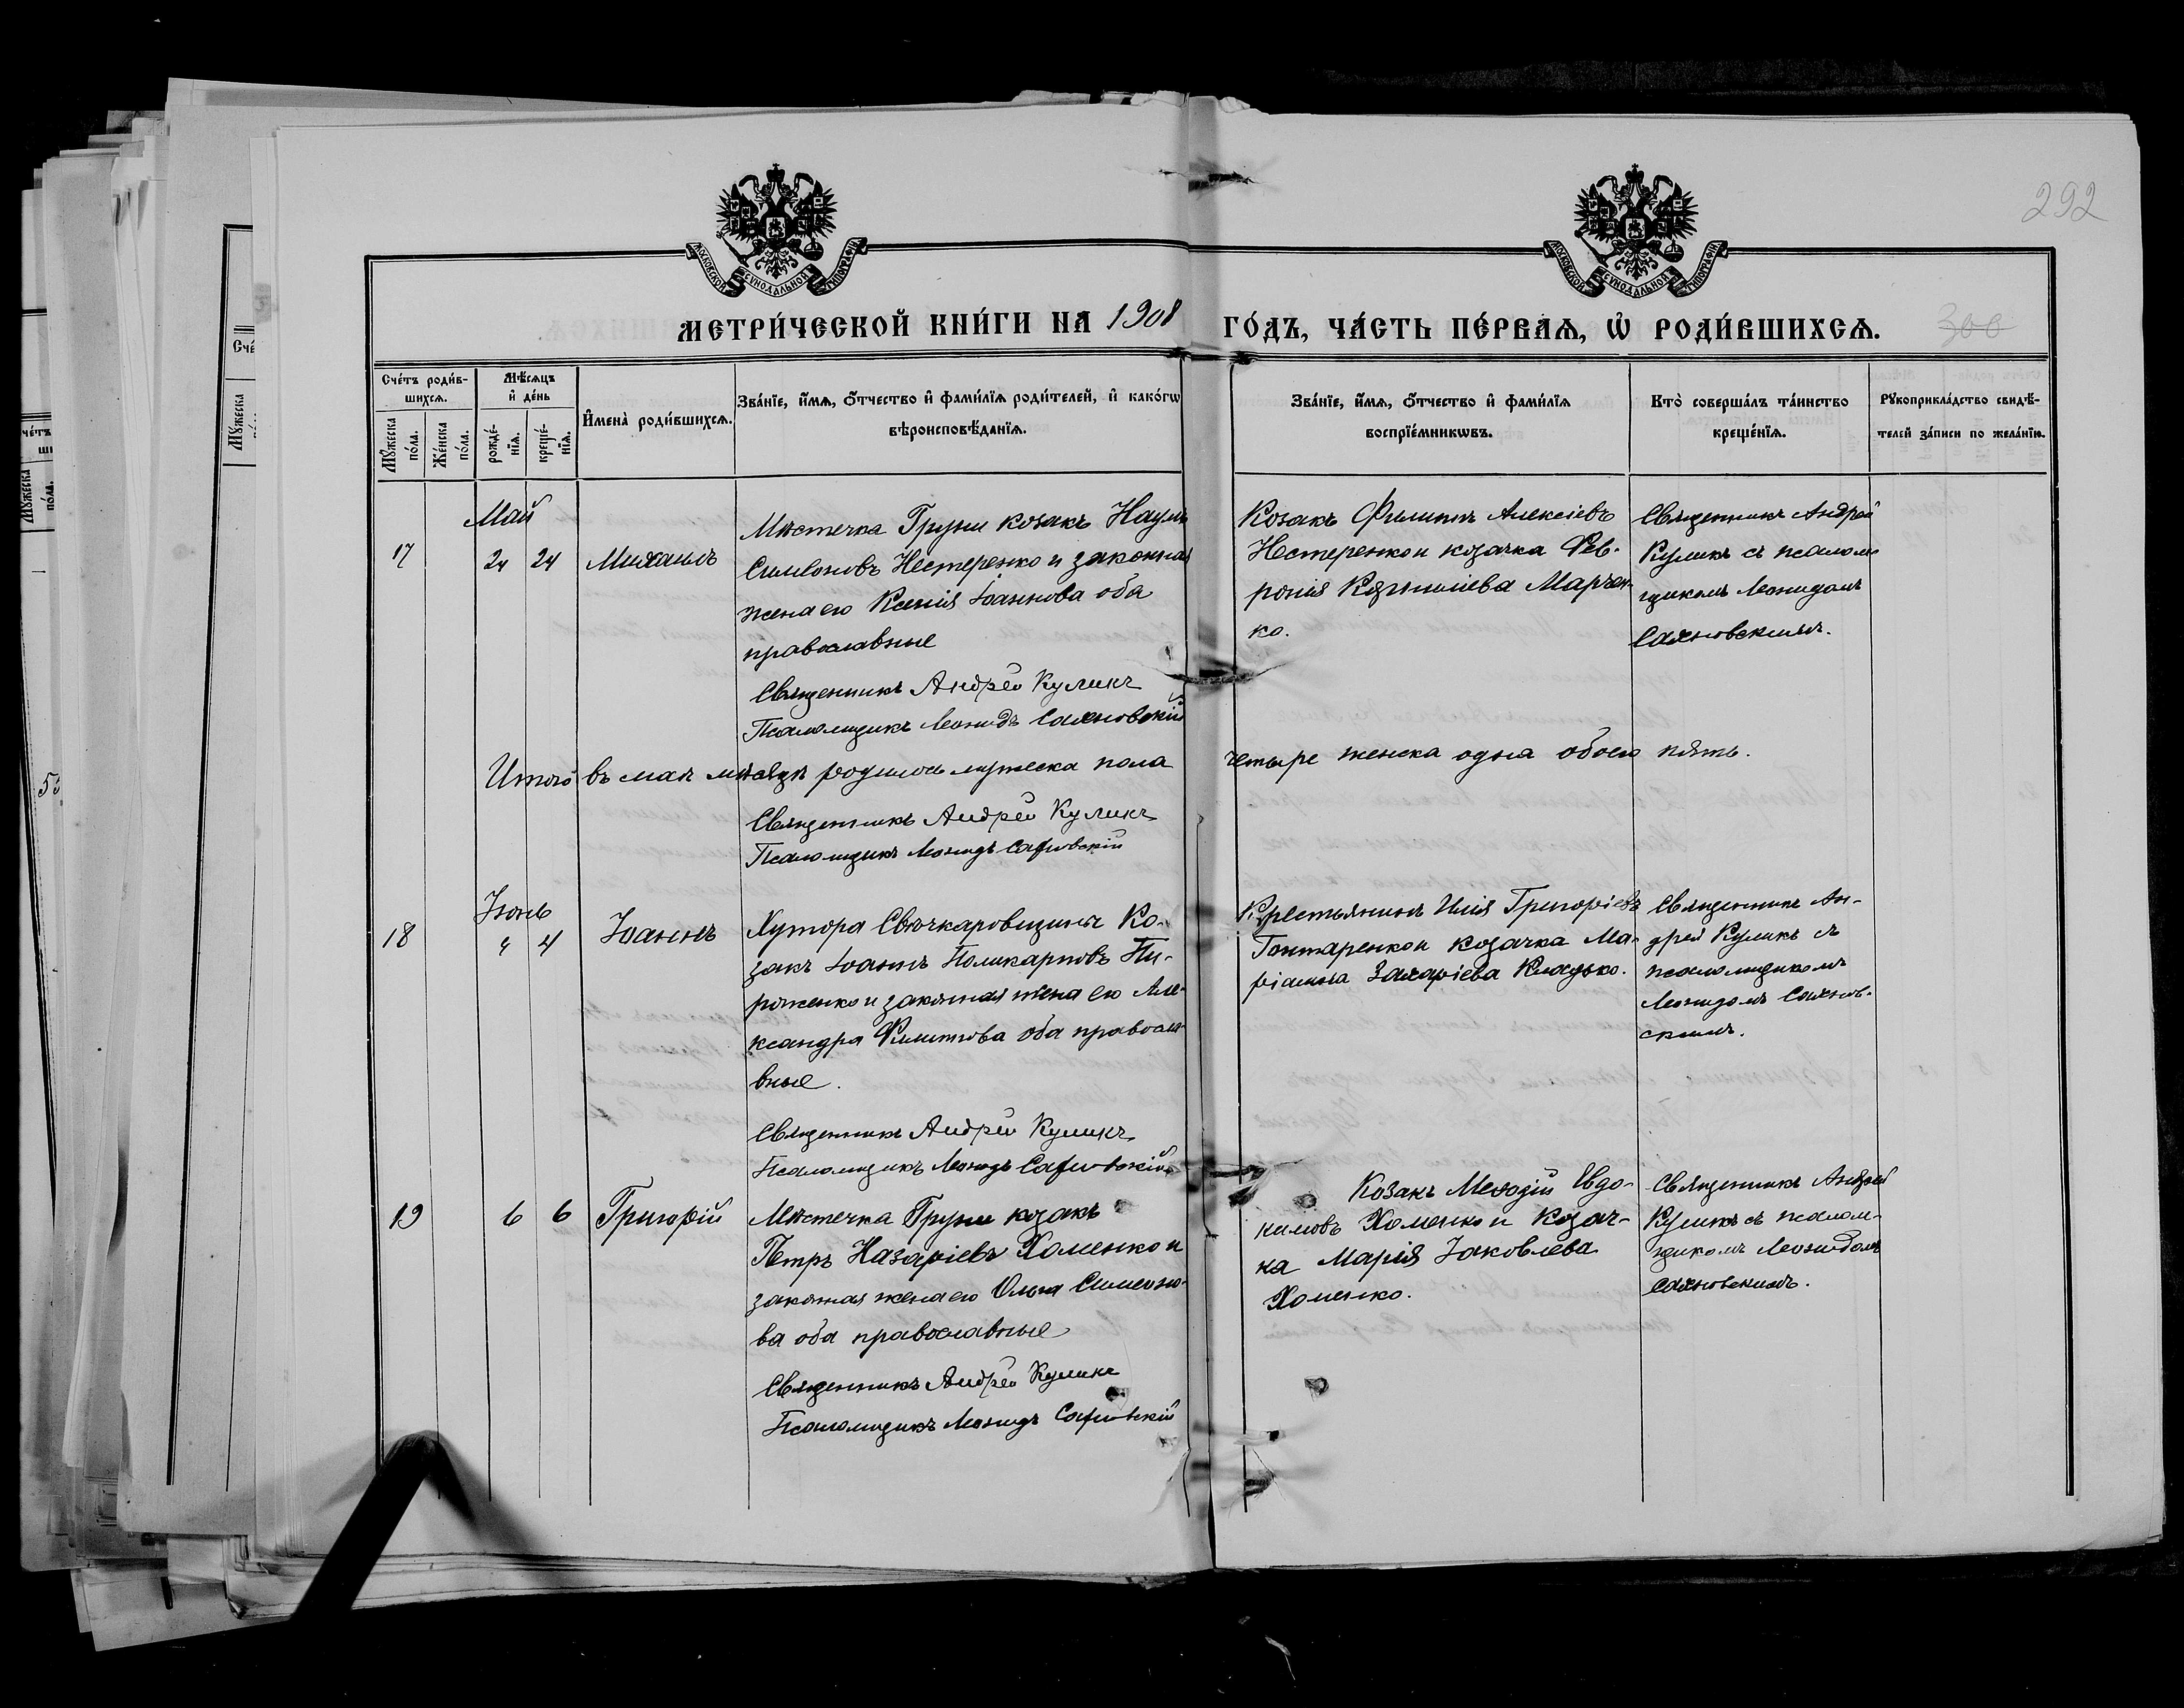 292
МОСКОВСКОЙ СѴНОДАЛЬНОЙ ТИПОГРАФІИ
МОСКОВСКОЙ СѴНОДАЛЬНОЙ ТИПОГРАФІИ
МЕТРИ́ЧЕСКОЙ КНИ́ГИ НА 1908 ГО́ДЪ, ЧА́СТЬ ПЕ́РВАѦ, Ѡ҆ РОДИ́ВШИХСѦ.
300
Сче́тъ роди́в-
шихсѧ.
Мꙋжеска
по́ла.
Же́нска
по́ла.
Мѣ́сѧцъ
и҆ де́нь
рожде́-
нїѧ.
креще́-
нїѧ.
И҆мена̀ роди́вшихсѧ.
Зва́нїе, и҆́мѧ, ѻ҆́тчество и҆ фами́лїѧ роди́телей, и҆ како́гѡ
вѣроисповѣ́данїѧ.
Зва́нїе, и҆́мѧ, ѻ҆́тчество и҆ фами́лїѧ
воспрїе́мникѡвъ.
Кто̀ соверша́лъ та́инство
креще́нїѧ.
Рꙋкоприкла́дство свидѣ́-
телей за́писи по жела́нїю.
Май
17
24 24
Михаилъ
Мѣстечка Груни козакъ Наумъ
Симеоновъ Нестеренко и законная
жена его Ксенія Іоаннова оба
православные
Священникъ Андрей Куликъ
Псаломщикъ Леонидъ Сахновскій
Козакъ Филиппъ Алексіевъ
Нестеренко и козачка Фев-
ронія Марчен-
ко.
Священникъ Андрей
Куликъ съ псалом-
щикомъ Леонидомъ
Сахновскимъ.
Итого въ маѣ мѣсяцѣ родилось мужеска пола четыре женска одна обоего пять.
Священникъ Андрей Куликъ
Псаломщикъ Леонидъ Сахновскій
Іюнь
18
4 4
Іоаннъ
Хутора Свѣчкаровщины Ко-
закъ Іоаннъ Поликарповъ Пи-
роженко и законная жена его Але-
ксандра Филиппова оба правосла-
вные.
Священникъ Андрей Куликъ
Псаломщикъ Леонидъ Сахновскій
Крестьянинъ Илія Григоріевъ
Гонтаренко и козачка Ма-
ріанна Захаріева Кладько.
Священникъ Ан-
дрей Куликъ съ
псаломщикомъ
Леонидомъ Сахнов-
скимъ.
19
6 6
Григорій
Мѣстечка Груни козакъ
Петръ Назаріевъ Хоменко и
законная жена его Ольга Симеоно-
ва оба православные
Священникъ Андрей Куликъ
Псаломщикъ Леонидъ Сахновскій
Козакъ Меѳодій Евдо-
кимовъ Хоменко и козач-
ка Марія Іаковлева
Хоменко.
Священникъ Андрей
Куликъ съ псалом-
щикомъ Леонидомъ
Сахновскимъ.